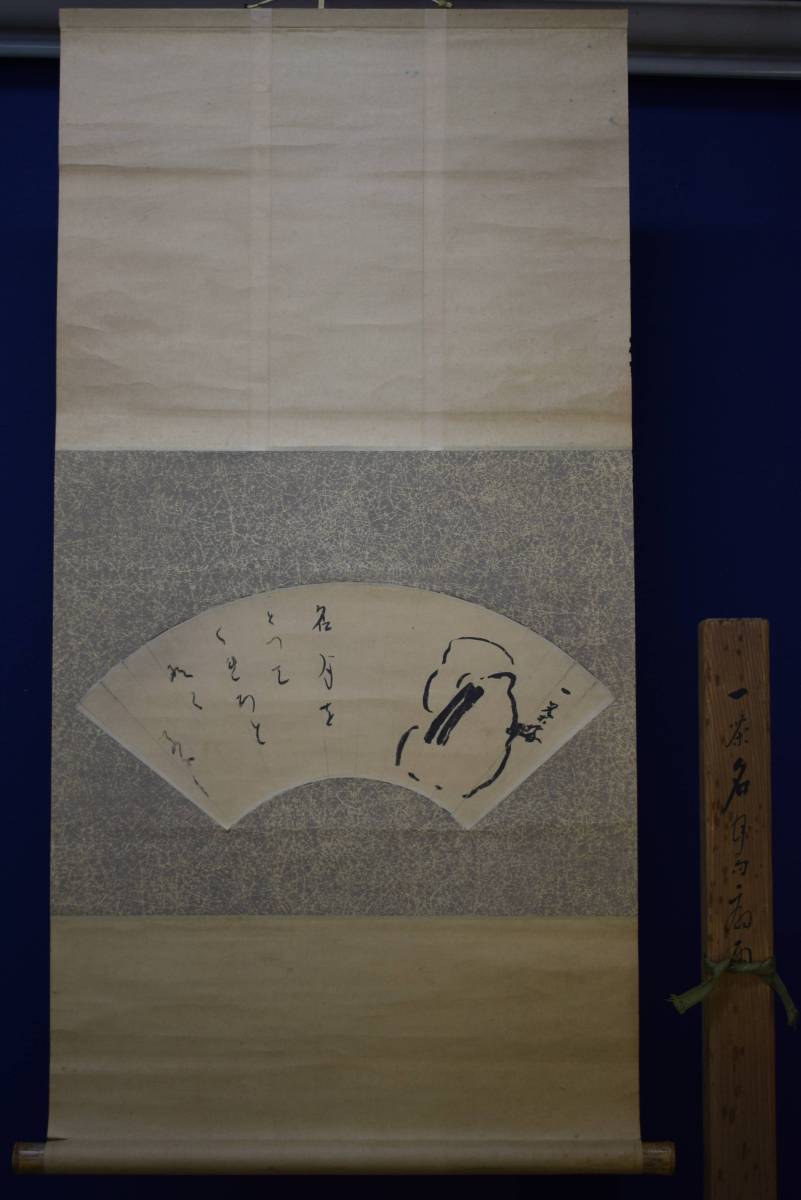 一茶
名月を
とつて
くれろと
なく子哉
一茶名月句扇面